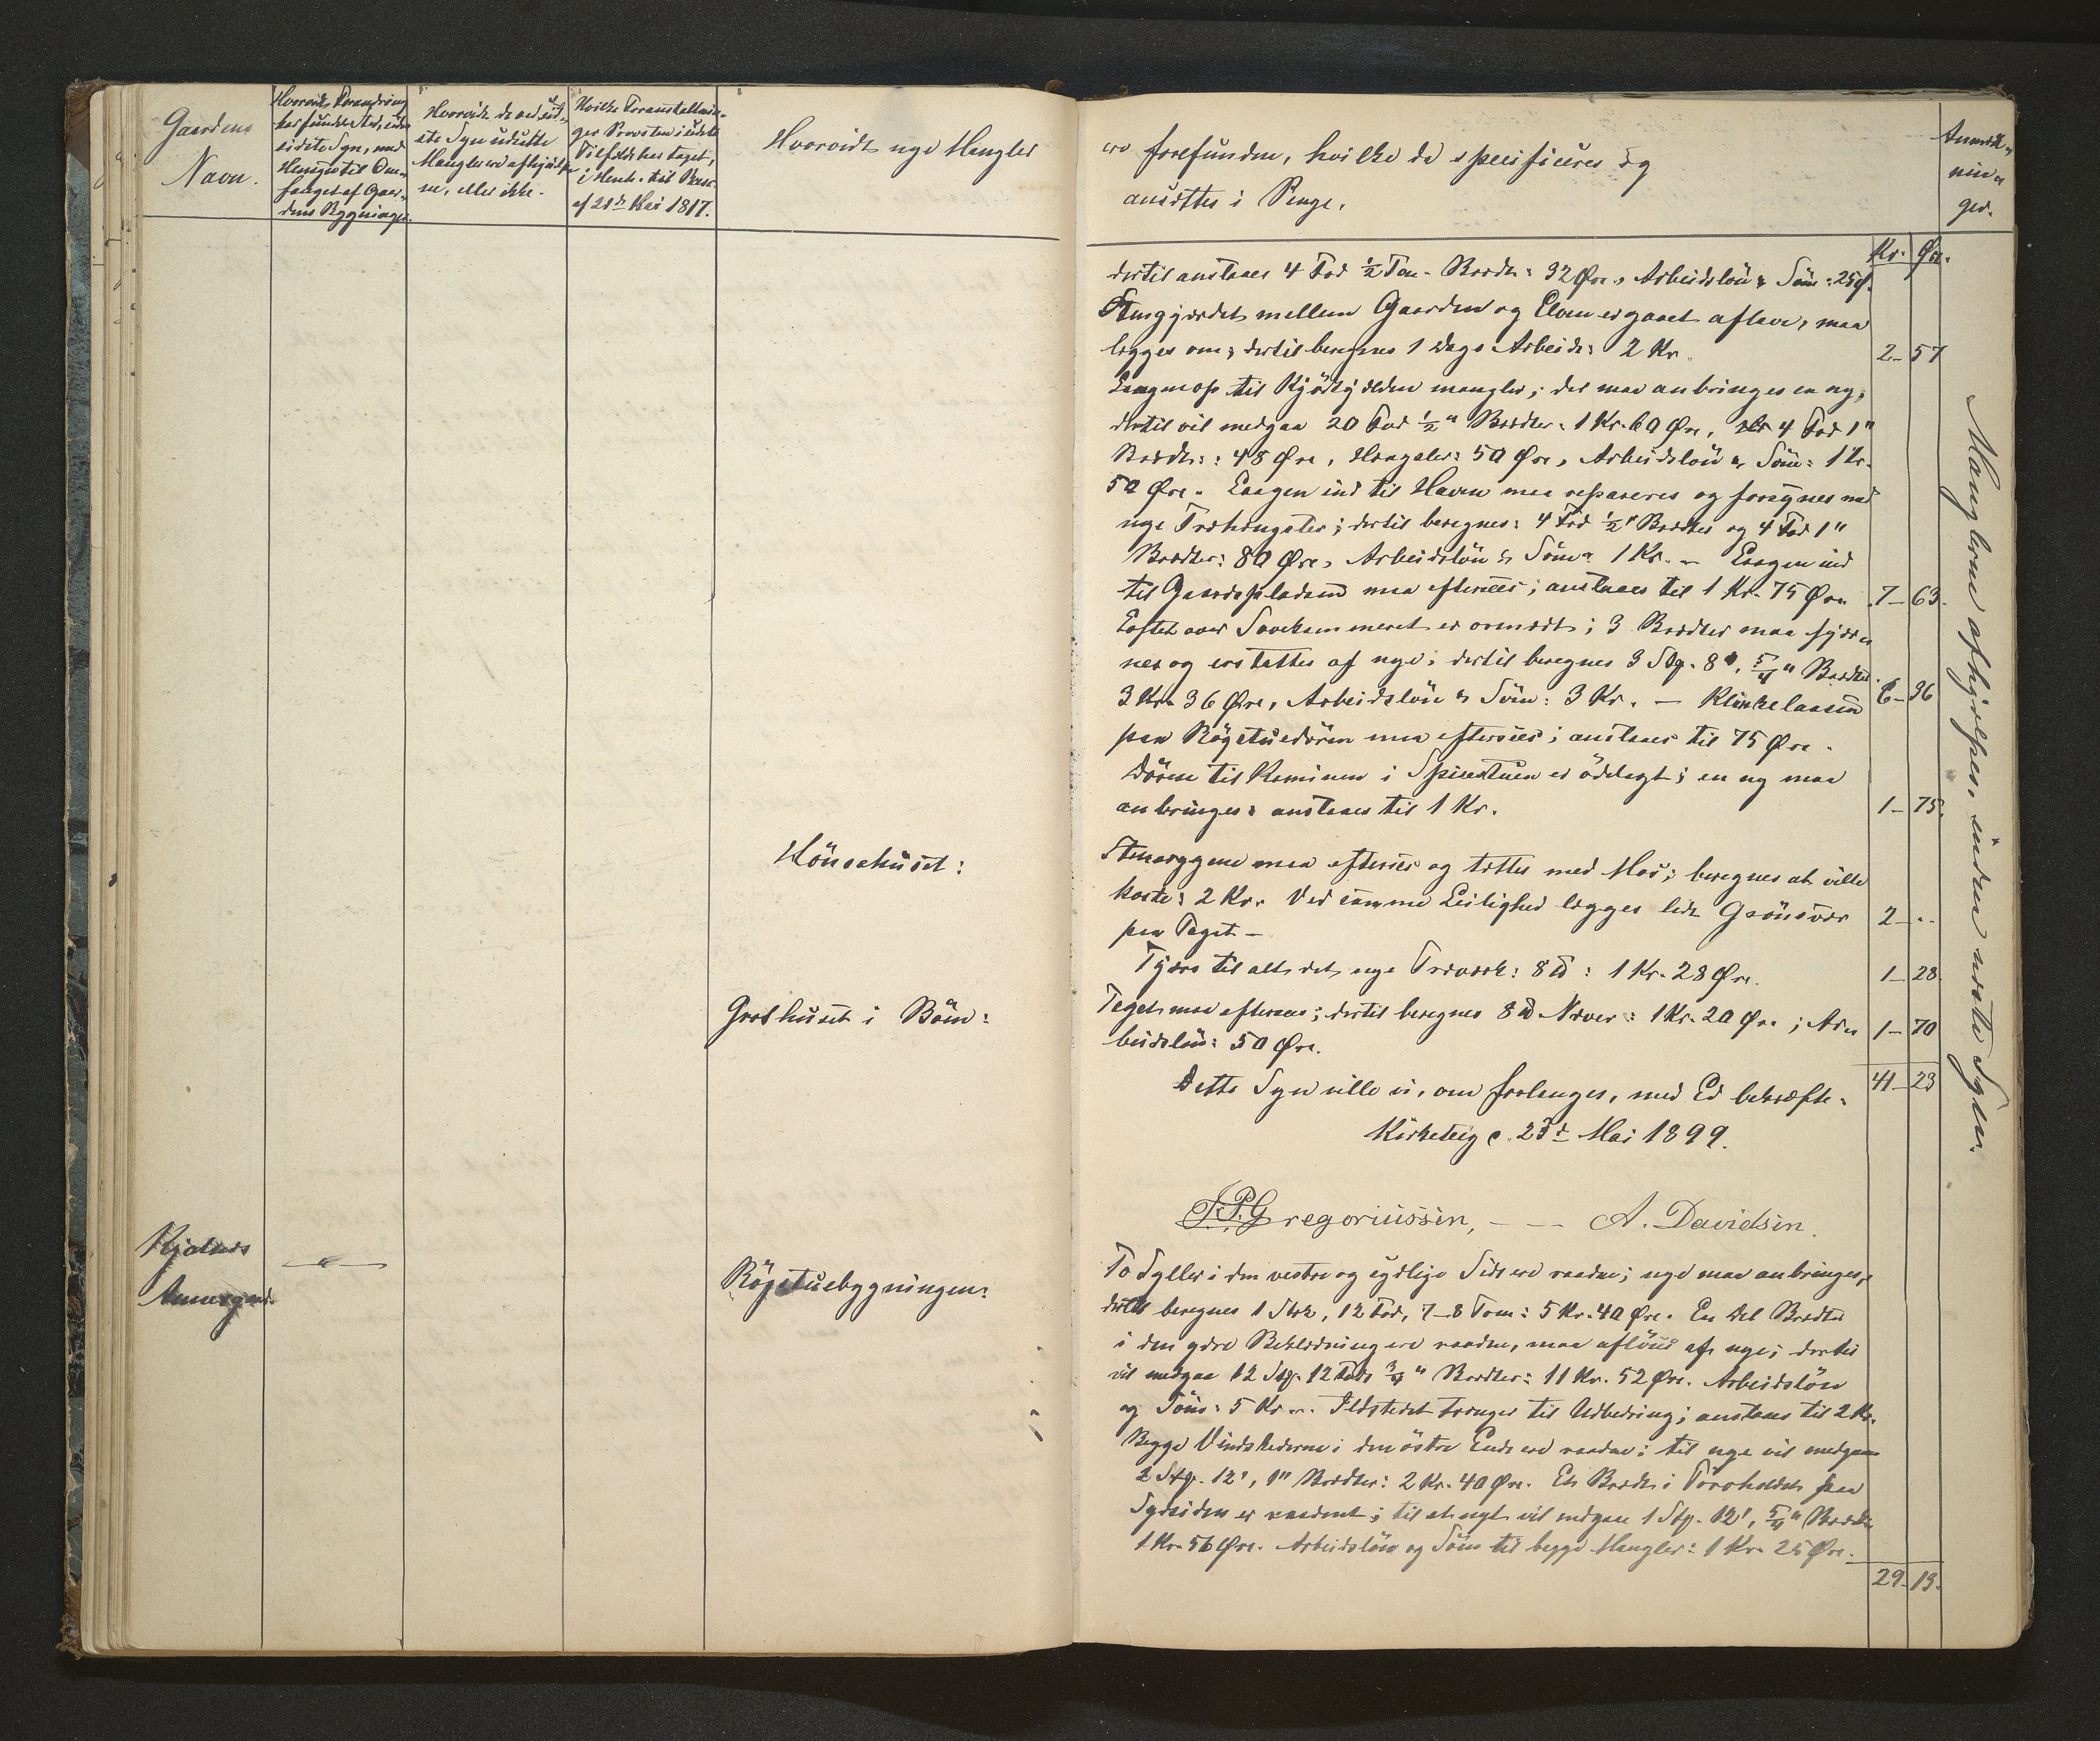 Gaardens
Navn.
Hvorvidt Forandring
har fundet Sted, siden
sidste Syn, med
Hensyn til Om-
fanget af Gaar-
dens Bygninger.
Hvorvidt de ved sid-
ste Syn udsatte
Mangler ere afhjulp-
ne, eller ikke.
Hvilke Foranstaltnin-
ger Provsten i sidste
Tilfælde har taget,
i Henh. til
af 28de Mai 1817.
Hvorvidt nye Mangler
ere forefundne, hvilke da specificeres og
ansættes i Penge.
Anmærk-
nin-
ger.
Kr. Øre.
dertil anslaaes 4 Fod ½ Tom. Bordt: 32 Øre, Arbeidsløn & Söm: 25 Ø.
Stengjærdet mellem Gaarden og Elven er gaaet aflave, maa
lægges om; dertil beregnes 1 Dags Arbeide: 2 Kr. 2 - 57
til mangler; der maa anbringes en ny,
dertil vil medgaa 20 Fod ½" Bordter: 1 Kr. 60 Øre, 4 Fod 1"
Bordter: 48 Øre, Hængsler: 50 Øre, Arbeidsløn & Söm: 1 Kr.
50 Øre. Laagen ind til Haven maa repareres og forsynes med
nye Træhængsler; dertil beregnes: 4 Fod ½" Bordter og 4 Fod 1"
Bordter: 80 Øre, Arbeidsløn & Söm: 1 Kr. - Laagen ind
til Gaardspladsen maa eftersees; anslaaes til 1 Kr. 75 Øre. 7 - 63.
Loftet over Sovekammeret er ormædt; 3 Bordter maa fjær-
nes og erstattes af nye; dertil beregnes 3 Stp. 8', 5/4" Bordter
3 Kr. 36 Øre, Arbeidsløn & Söm: 3 Kr. - Klinkelaasen 6 - 36
paa Røgstuedøren maa eftersees; anslaaes til 75 Øre.
Døren til Kaminen i Spisestuen er ödelagt; en ny maa
anbringes: anslaaes til 1 Kr. 1 - 75.
Hönsehuset:
maa eftersees og tættes med Mos; beregnes at ville
koste: 2 Kr. Ved samme Leilighed lægges lidt Grönsvær 2 - ..
paa Taget -
Tjære til alt det nye Træværk: 8 ℔: 1 Kr. 28 Øre. 1 - 28.
i Böen:
Taget maa eftersees; dertil beregnes 8 ℔ Næver: 1 Kr. 20 Øre; Ar- 1 - 70
beidsløn: 50 Øre.
41 - 23
Dette Syn ville vi, om forlanges, med Ed bekræfte.
Kirketeig d. 25de Mai 1899.
J.P. Gregoriussen, - - - A. Davidsen.
Kjølnes
Røgstuebygningen:
To Syller i den vestre og sydlige Side ere raadne; nye maa anbringes,
dertil beregnes 1 Stok, 12 Fod, 7-8 Tom: 5 Kr. 40 Øre. En Del Bordter
i den ydre Beklædning ere raadne, maa aflöses af nye; dertil
vil medgaa 12 Stp. 12 Fods 3/4" Bordter: 11 Kr. 52 Øre. Arbeidsløn
og Söm: 5 Kr. Ildstedet trænger til Udbedring; anslaaes til 2 Kr.
Begge Vindskederne i den östre Ende ere raadne; til nye vil medgaa
2 Stp. 12', 1" Bordter: 2 Kr. 40 Øre. Et Bordt i paa
Sydsiden er raadent; til et nyt vil medgaa 1 Stp. 12', 5/4" Bordt:
1 Kr. 56 Øre. Arbeidsløn og Söm til begge Mangler: 1 Kr. 25 Øre.
29 - 13.
Manglerne afhjælpes inden næste Syn.